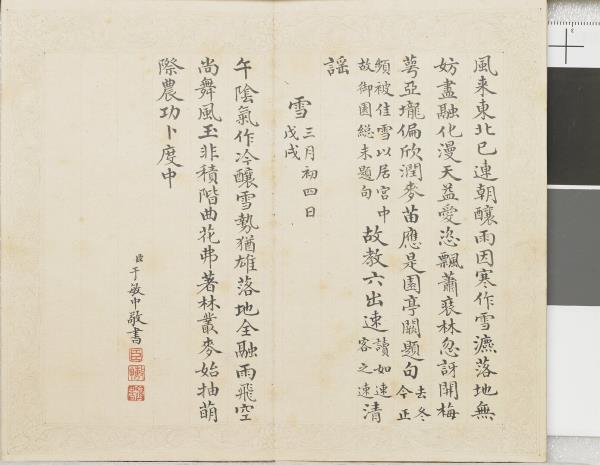 風来東北已連朝釀雨因寒作雪瀌落地無
妨盡融化漫天益愛恣飄蕭衰林忽訝開梅
萼亞壠偏欣潤麥苗應是園亭闕題句去冬今正
頻被佳雪以居宮中故御園總未題句故教六出速讀如速客之速清
謠
雪三月初四日戊戌
午陰氣作冷釀雪勢猶雄落地全融雨飛空
尚舞風玉非積階曲花弗著林叢麥始抽萌
際農功卜度中
臣于敏中敬書